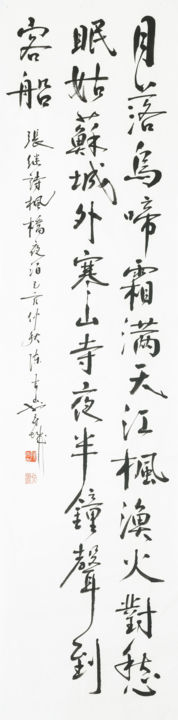 月落烏啼霜满天江楓漁火對愁
眠姑蘇城外寒山寺夜半鐘聲到
客船
張继詩楓橋夜泊乙亥仲秋陈